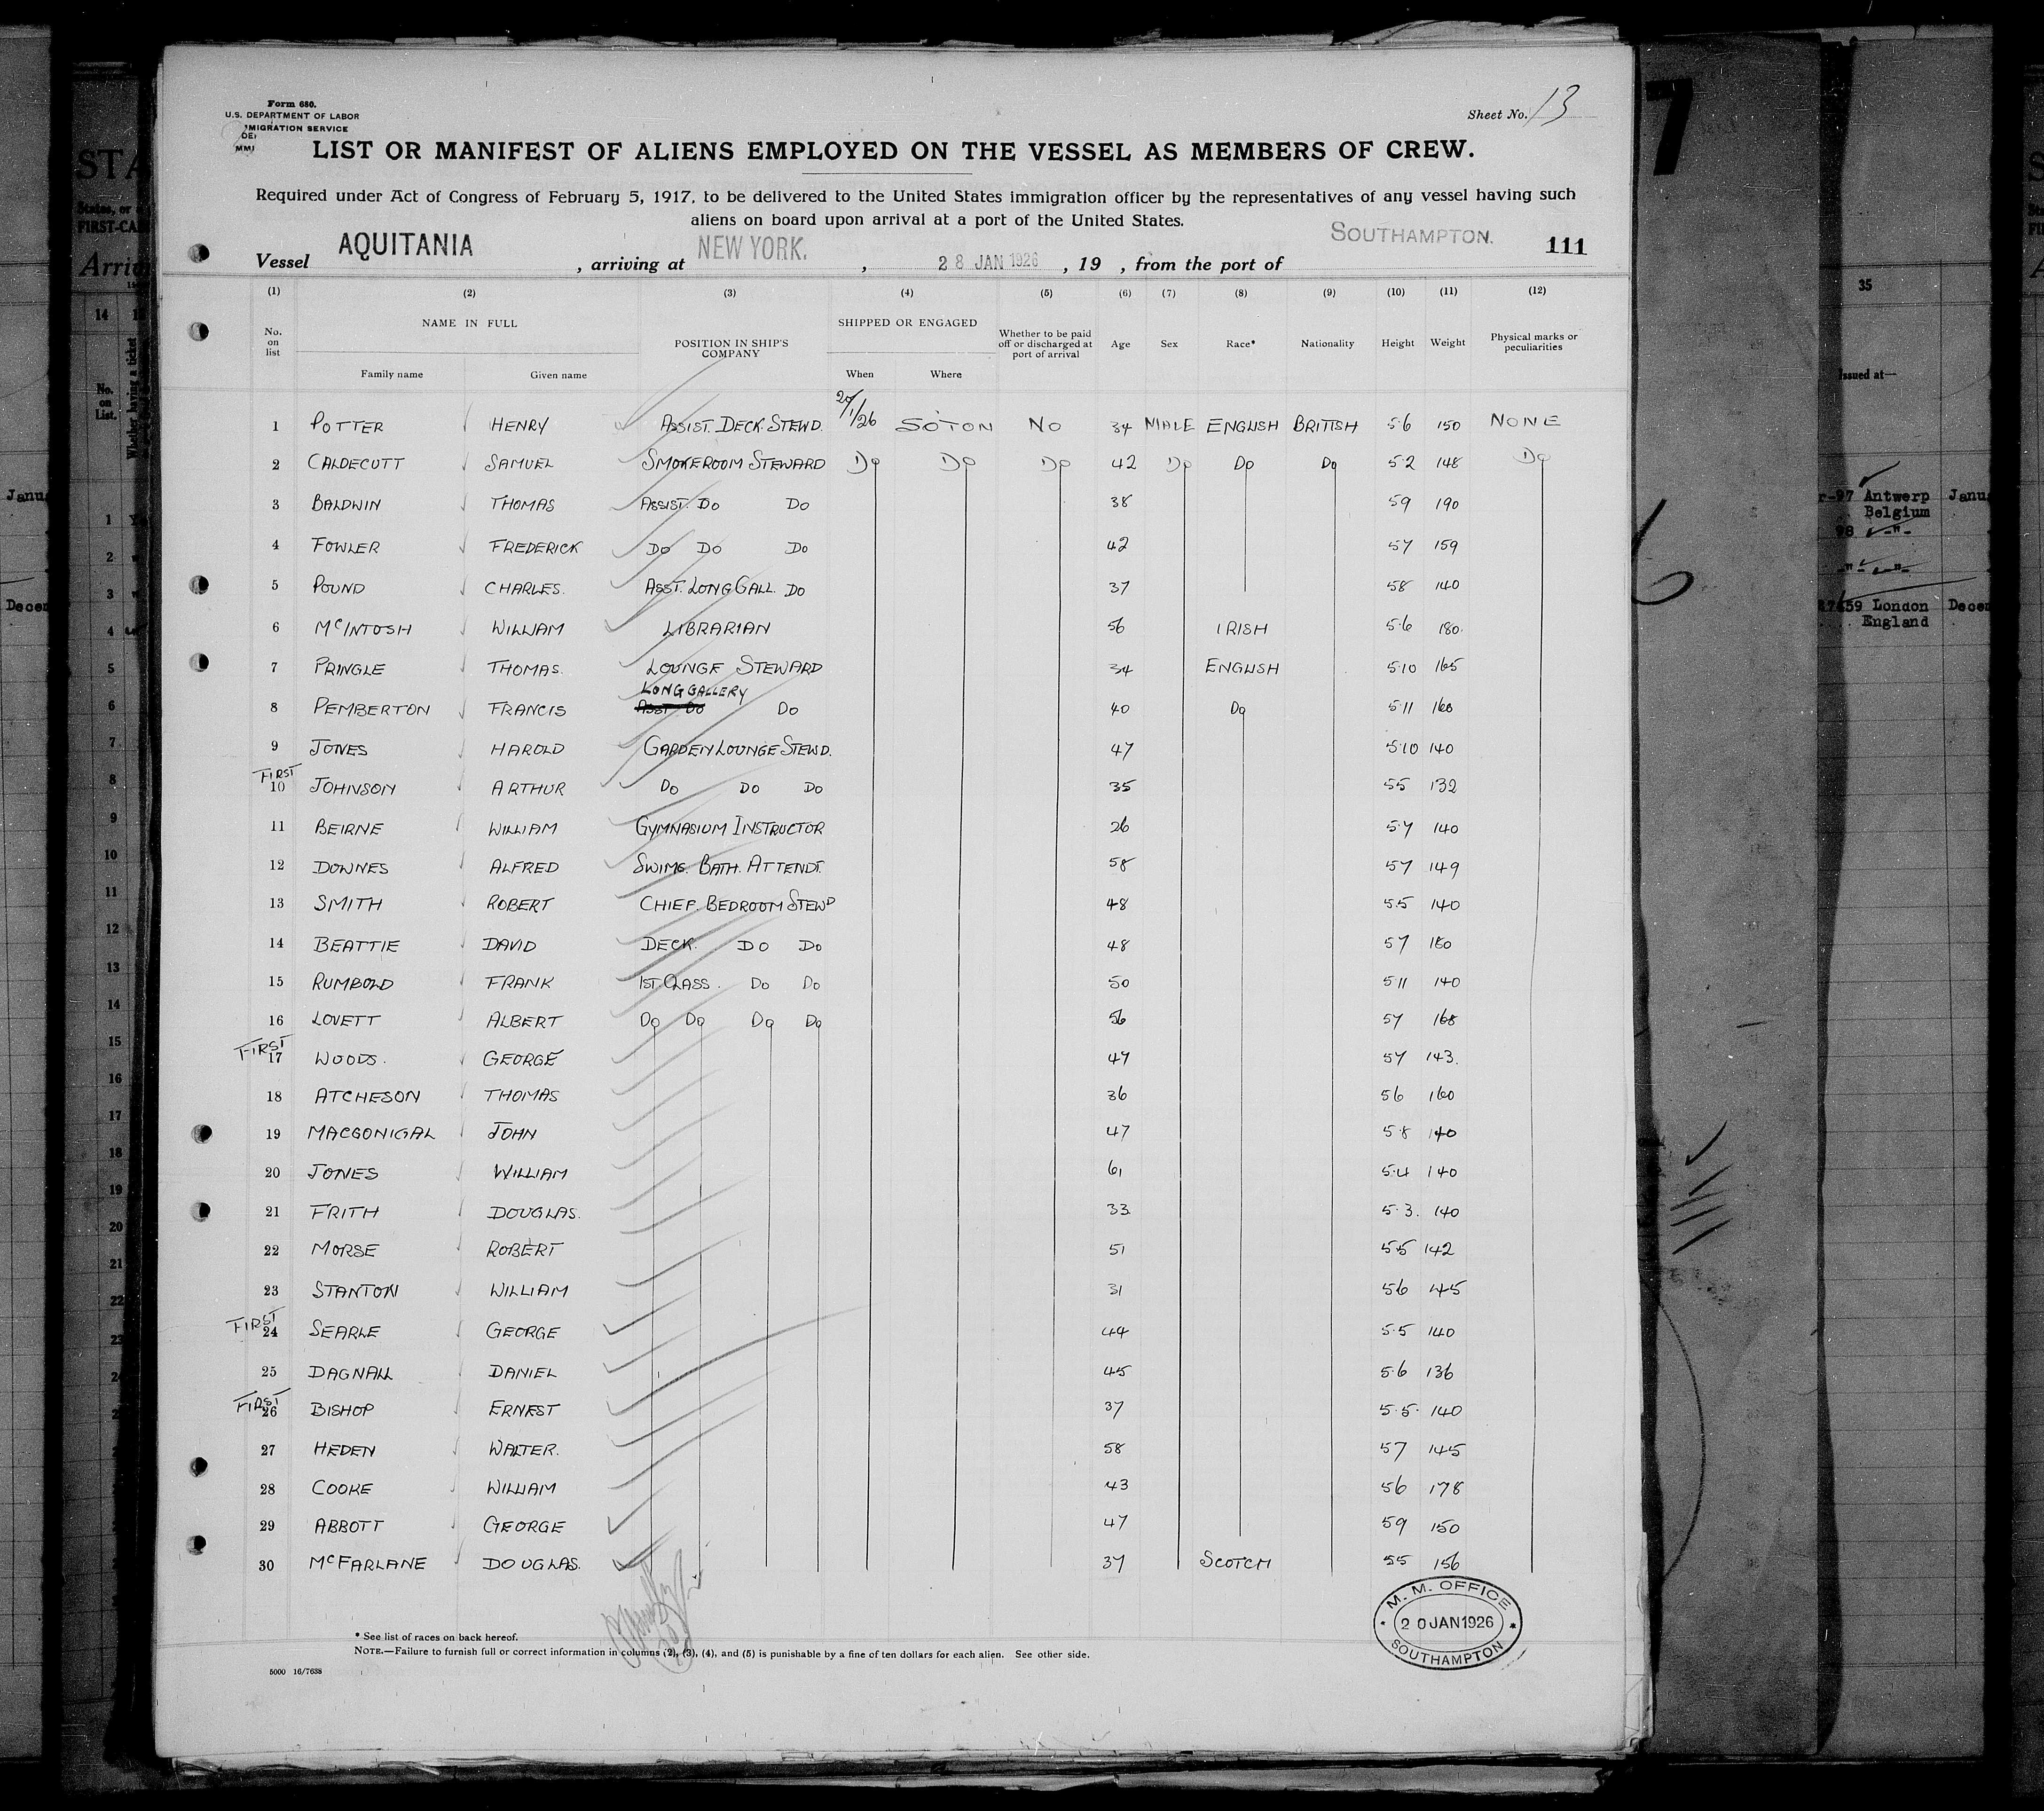 Form 680.
U.S. DEPARTMENT OF LABOR
IMMIGRATION SERVICE
Sheet No. 13
LIST OR MANIFEST OF ALIENS EMPLOYED ON THE VESSEL AS MEMBERS OF CREW.
Required under Act of Congress of February 5, 1917, to be delivered to the United States immigration officer by the representatives of any vessel having such
aliens on board upon arrival at a port of the United States.
Vessel AQUITANIA, arriving at NEW YORK., 28 JAN 1926, 19 , from the port of SOUTHAMPTON. 111
(1) (2) (3) (4) (5) (6) (7) (8) (9) (10) (11) (12)
No. on list NAME IN FULL Family name Given name POSITION IN SHIP'S COMPANY SHIPPED OR ENGAGED When Where Whether to be paid off or discharged at port of arrival Age Sex Race* Nationality Height Weight Physical marks or peculiarities
1 POTTER HENRY ASSIST. DECK STEWD. /1/26 SOTON NO 34 MALE ENGLISH BRITISH 5.6 150 NONE
2 CALDECUTT SAMUEL SMOKEROOM STEWARD Do Do Do 42 Do Do Do 5.2 148 Do
3 BALDWIN THOMAS ASSIST. Do Do 38 59 190
4 FOWLER FREDERICK Do Do Do 42 57 159
5 POUND CHARLES. ASST. LONG GALL. Do 37 58 140
6 McINTOSH WILLIAM LIBRARIAN 56 IRISH 5.6 180.
7 PRINGLE THOMAS. LOUNGE STEWARD 34 ENGLISH 5.10 165
LONG GALLERY
8 PEMBERTON FRANCIS ASST Do Do 40 Do 5.11 160
9 JONES HAROLD GARDEN LOUNGE STEWD. 47 5.10 140
FIRST
10 JOHNSON ARTHUR Do Do Do 35 55 132
11 BEIRNE WILLIAM GYMNASIUM INSTRUCTOR 26 5.7 140
12 DOWNES ALFRED SWIMG. BATH. ATTENDT. 58 57 149
13 SMITH ROBERT CHIEF. BEDROOM STEWD 48 5.5 140
14 BEATTIE DAVID DECK. Do Do 48 57 180
15 RUMBOLD FRANK 1ST CLASS. Do Do 50 5.11 140
16 LOVETT ALBERT Do Do Do Do 56 57 168
FIRST
17 WOODS. GEORGE 47 57 143.
18 ATCHESON THOMAS 36 56 160
19 MACGONIGAL JOHN 47 5.8 140
20 JONES WILLIAM 61 5.4 140
21 FRITH DOUGLAS. 33 5.3. 140
22 MORSE ROBERT 51 5.5 142
23 STANTON WILLIAM 31 56 145
FIRST
24 SEARLE GEORGE 44 5.5 140
25 DAGNALL DANIEL 45 5.6 136
FIRST
26 BISHOP ERNEST 37 5.5. 140
27 HEDEN WALTER. 58 57 145
28 COOKE WILLIAM 43 56 178
29 ABBOTT GEORGE 47 59 150
30 McFARLANE DOUGLAS. 37 SCOTCH 55 156
M. M. OFFICE
20 JAN 1926
SOUTHAMPTON
* See list of races on back hereof.
NOTE.—Failure to furnish full or correct information in columns (2), (3), (4), and (5) is punishable by a fine of ten dollars for each alien. See other side.
5000 16/7638
7
35
Issued at—
Antwerp
Belgium
London
England